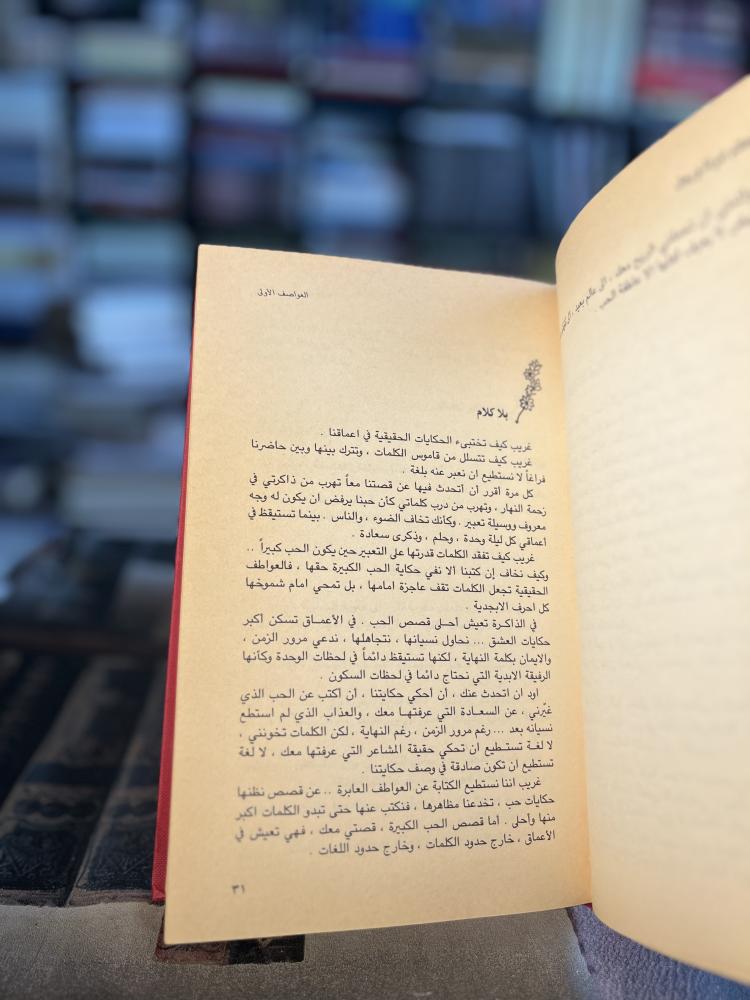 العواصف الأولى
بلا كلام
غريب كيف تختبىء الحكايات الحقيقية في اعماقنا .
غريب كيف تتسلل من قاموس الكلمات ، وتترك بينها وبين حاضرنا
فراغاً لا نستطيع ان نعبر عنه بلغة .
كل مرة أقرر أن أتحدث فيها عن قصتنا معاً تهرب من ذاكرتي في
زحمة النهار ، وتهرب من درب كلماتي كأن حبنا يرفض ان يكون له وجه
معروف ووسيلة تعبير . وكأنك تخاف الضوء ، والناس . بينما تستيقظ في
أعماقي كل ليلة وحدة ، وحلم ، وذكرى سعادة .
غريب كيف تفقد الكلمات قدرتها على التعبير حين يكون الحب كبيراً ..
وكيف نخاف إن كتبنا ألا نفي حكاية الحب الكبيرة حقها ، فالعواطف
الحقيقية تجعل الكلمات تقف عاجزة امامها ، بل تمحي امام شموخها
كل احرف الابجدية .
في الذاكرة تعيش أحلى قصص الحب . في الأعماق تسكن اكبر
حكايات العشق ... نحاول نسيانها ، نتجاهلها ، ندعي مرور الزمن ،
والايمان بكلمة النهاية ، لكنها تستيقظ دائماً في لحظات الوحدة وكأنها
الرفيقة الابدية التي نحتاج دائما في لحظات السكون .
اود ان اتحدث عنك ، أن أحكي حكايتنا ، أن اكتب عن الحب الذي
غيّرني ، عن السعادة التي عرفتها معك ، والعذاب الذي لم استطع
نسيانه بعد ... رغم مرور الزمن ، رغم النهاية ، لكن الكلمات تخونني ،
لا لغة تستطيع ان تحكي حقيقة المشاعر التي عرفتها معك ، لا لغة
تستطيع ان تكون صادقة في وصف حكايتنا .
غريب اننا نستطيع الكتابة عن العواطف العابرة .. عن قصص نظنها
حكايات حب ، تخدعنا مظاهرها ، فنكتب عنها حتى تبدو الكلمات اكبر
منها وأحلى . أما قصص الحب الكبيرة ، قصتي معك ، فهي تعيش في
الأعماق ، خارج حدود الكلمات ، وخارج حدود اللغات .
٣١